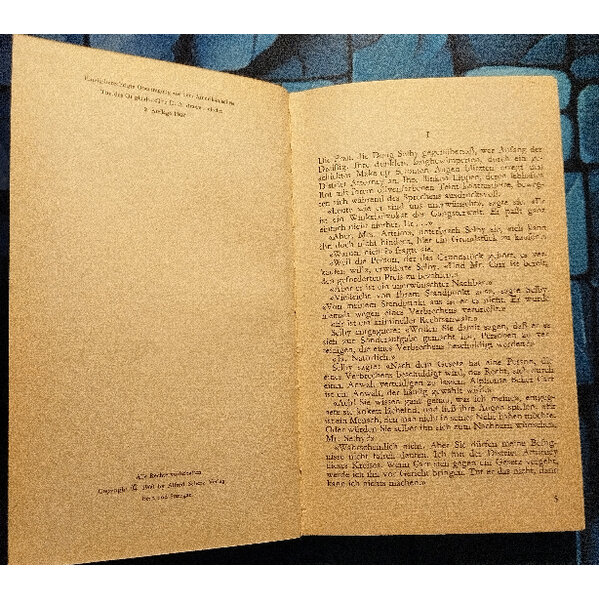 Titel des Originals: «The D. A.
2. Auflage
Alle Rechte vorbehalten
Copyright © by Alfred Scherz Verlag
Bern und Stuttgart
1
Die Frau, die Doug Selby gegenübersaß, war Anfang der
Dreißig. Ihre dunklen, langbewimperten, durch ein ge-
schicktes Make-up betonten Augen blitzten erregt den
District Attorney an. Ihre flinken Lippen, deren lebhaftes
Rot mit ihrem olivenfarbenen Teint kontrastierte, beweg-
ten sich während des Sprechens ausdrucksvoll.
«Leute wie er sind uns unerwünscht», sagte sie. «Er
ist ein Winkeladvokat der Gangsterwelt. Er paßt ganz
einfach nicht hierher. Er . . .»
«Aber, Mrs. Artrim», unterbrach Selby sie, «ich kann
ihn doch nicht hindern, hier ein Grundstück zu kaufen.»
«Warum nicht?» fragte sie.
«Weil die Person, der das Grundstück gehört, es ver-
kaufen will», erwiderte Selby. «Und Mr. Carr ist bereit,
den geforderten Preis zu bezahlen.»
«Aber er ist ein unerwünschter Nachbar.»
«Vielleicht von Ihrem Standpunkt aus», sagte Selby.
«Von meinem Standpunkt aus ist er es nicht. Er wurde
niemals wegen eines Verbrechens verurteilt.»
«Er ist ein krimineller Rechtsanwalt.»
Selby entgegnete: «Wollen Sie damit sagen, daß er es
sich zur Sonderaufgabe gemacht hat, Personen zu ver-
teidigen, die eines Verbrechens beschuldigt werden?»
«Ja. Natürlich.»
Selby sagte: «Nach dem Gesetz hat eine Person, die
eines Verbrechens beschuldigt wird, das Recht, sich durch
einen Anwalt verteidigen zu lassen. Alphonse Baker Carr
ist ein Anwalt, der häufig gewählt wird.»
«Ach! Sie wissen ganz genau, was ich meine», entgeg-
nete sie, kokett lächelnd, und ließ ihre Augen spielen. «Er
ist ein Mensch, den man nicht in seiner Nähe haben möchte.
Oder würden Sie selber ihn sich zum Nachbarn wünschen,
Mr. Selby?»
«Wahrscheinlich nicht. Aber Sie dürfen meine Befug-
nisse nicht falsch deuten. Ich bin der District Attorney
dieses Kreises. Wenn Carr sich gegen ein Gesetz vergeht,
werde ich ihn vor Gericht bringen. Tut er das nicht, dann
kann ich nichts machen.»
5